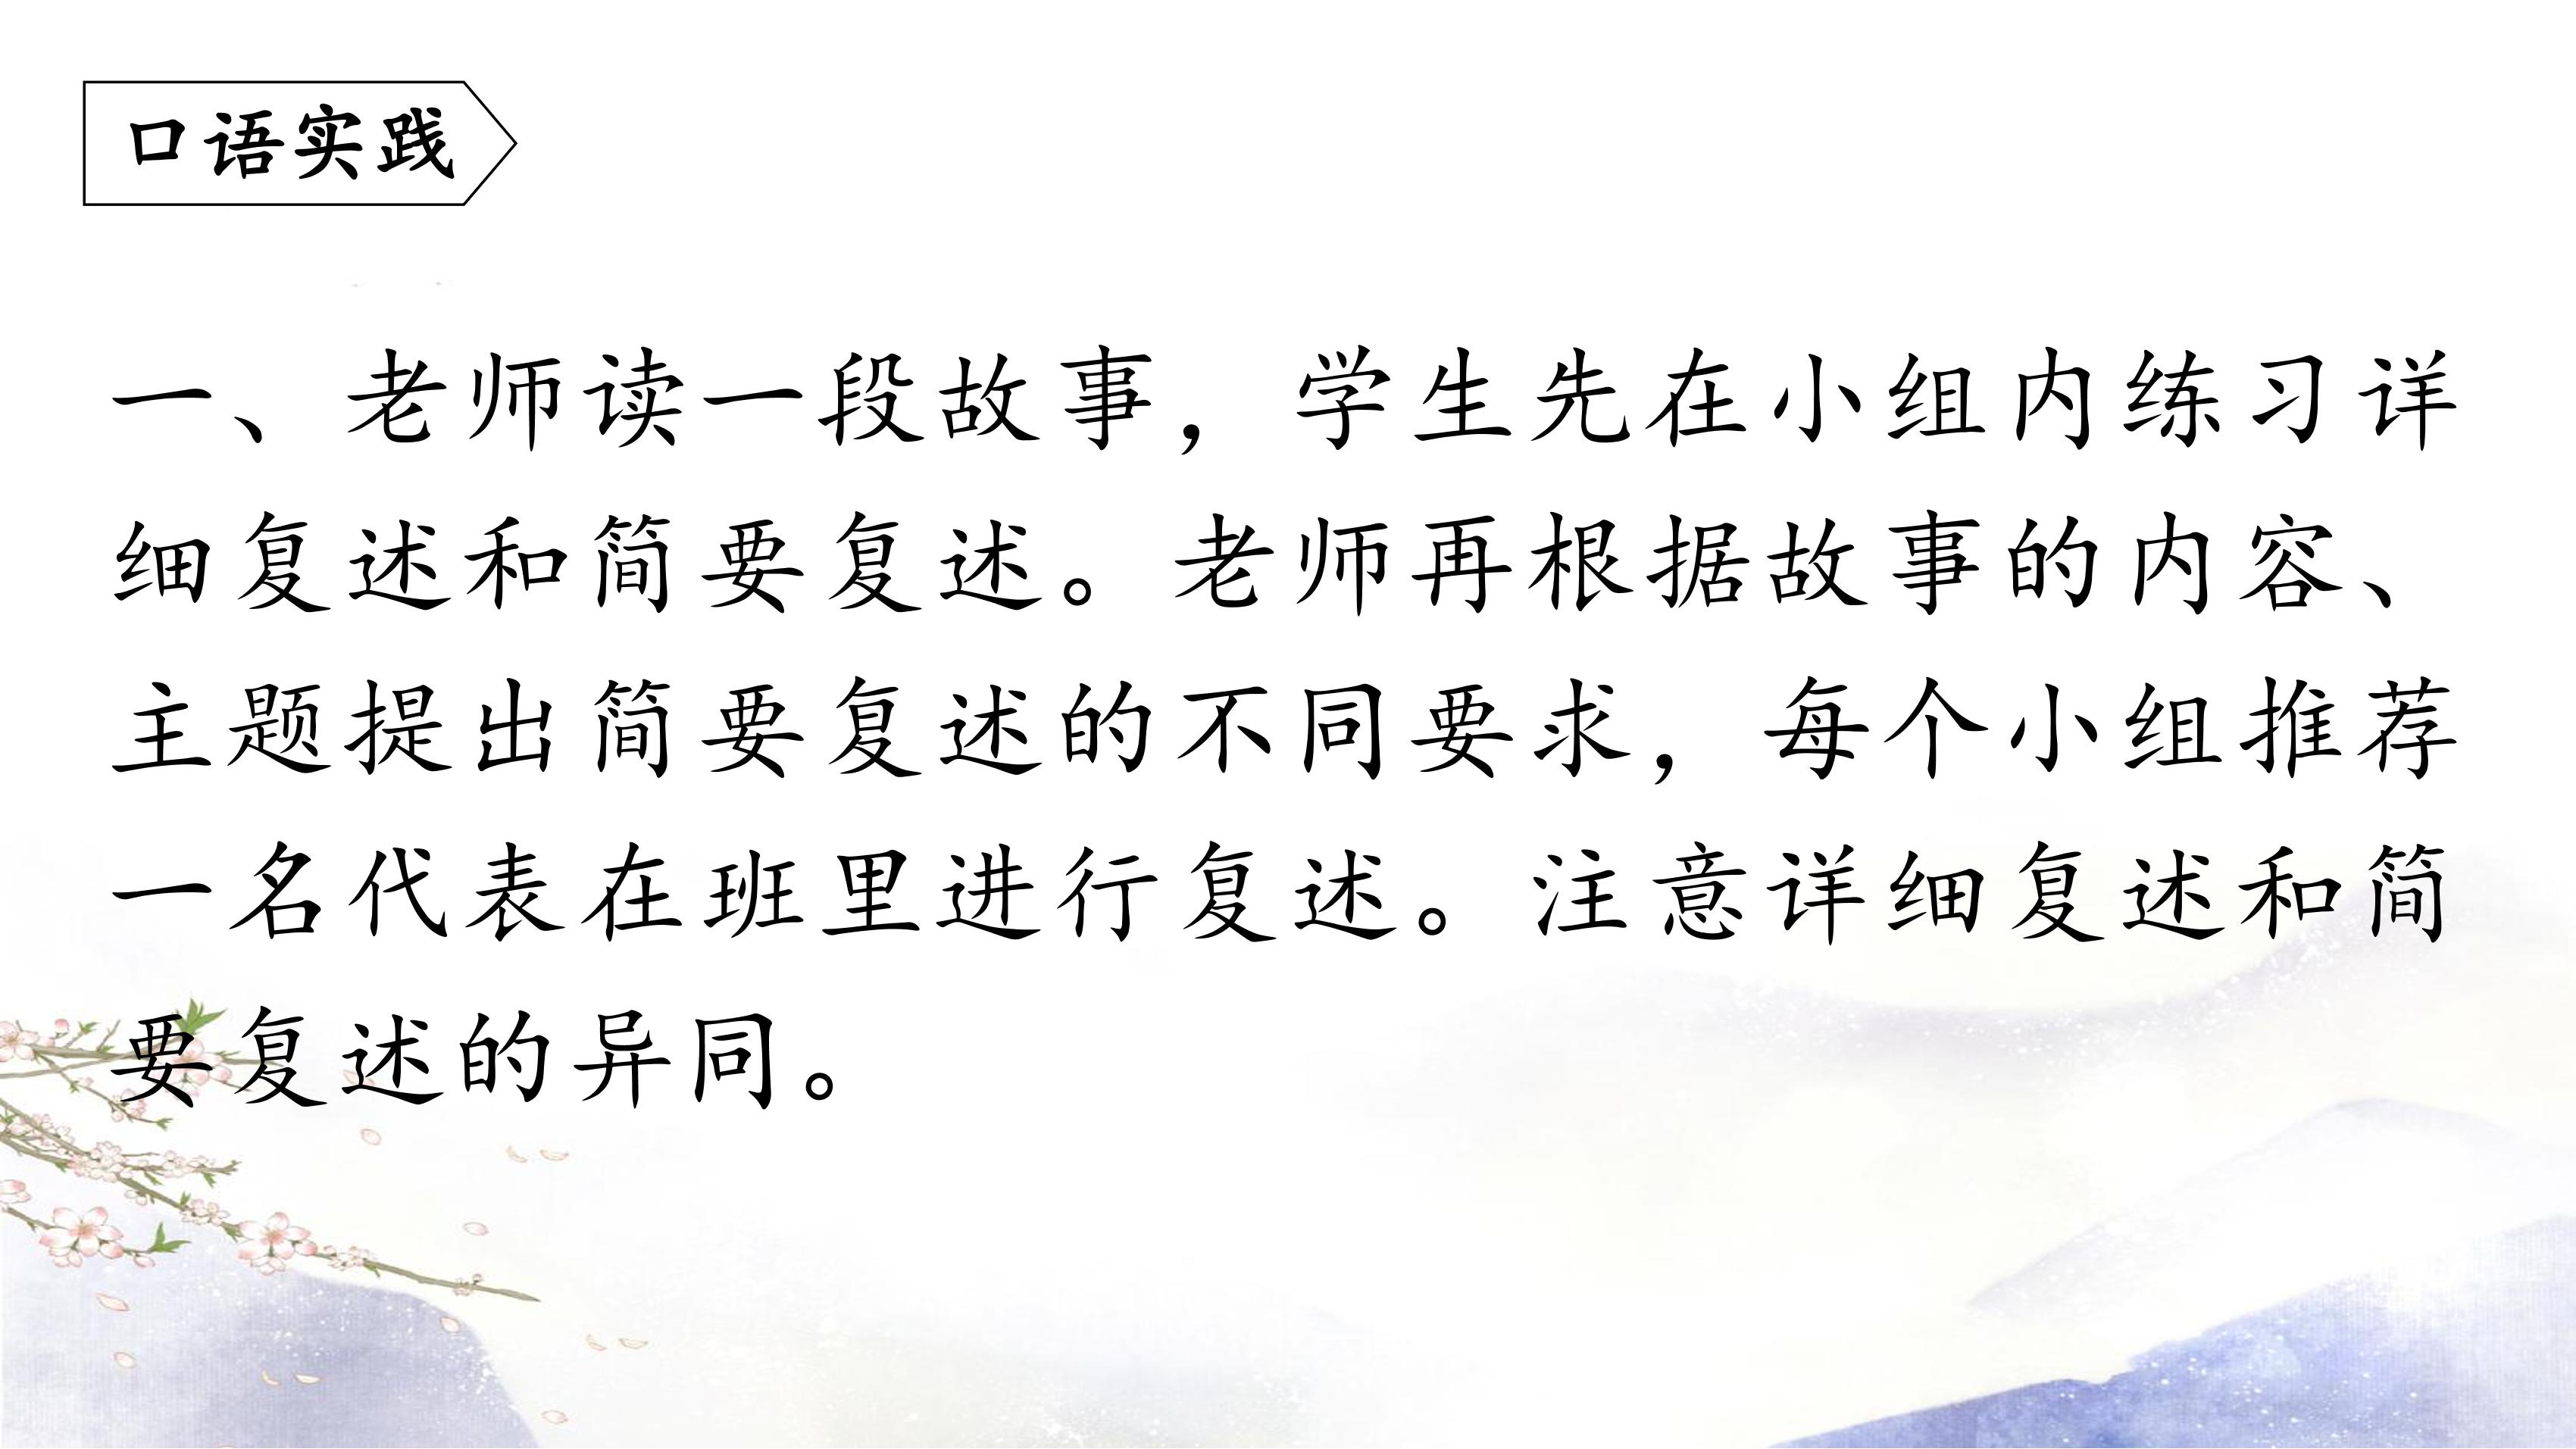 口语实践
一、老师读一段故事，学生先在小组内练习详
细复述和简要复述。老师再根据故事的内容、
主题提出简要复述的不同要求，每个小组推荐
一名代表在班里进行复述。注意详细复述和简
要复述的异同。